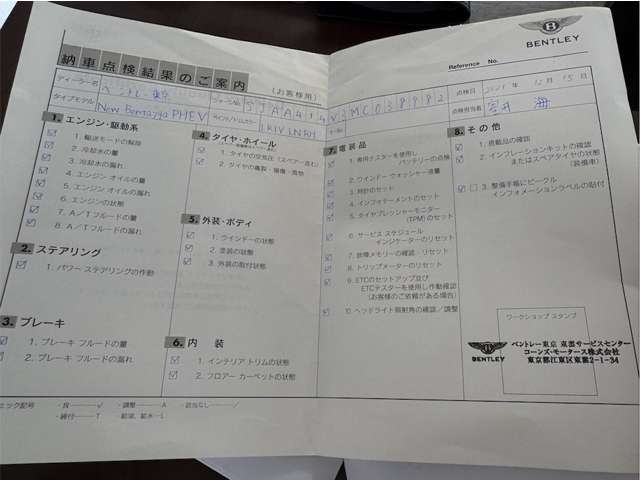 納車点検結果のご案内
（お客様用）
BENTLEY
Reference No.
ディーラー名
ベントレー東京
点検日 2021年 12月 15日
タイプモデル
New Bentayga PHEV
点検担当者
1. エンジン・駆動系
1. 輸送モードの解除
2. 冷却水の量
3. 冷却水の漏れ
4. エンジン オイルの量
5. エンジン オイルの漏れ
6. エンジンの状態
7. A／Tフルードの量
8. A／Tフルードの漏れ
2. ステアリング
1. パワー ステアリングの作動
3. ブレーキ
1. ブレーキ フルードの量
2. ブレーキ フルードの漏れ
4. タイヤ・ホイール
1. タイヤの空気圧（スペアー含む）
2. タイヤの亀裂・損傷・異物
5. 外装・ボディ
1. ウインドーの状態
2. 塗装の状態
3. 外装の取付状態
6. 内装
1. インテリア トリムの状態
2. フロアー カーペットの状態
7. 電装品
1. 専用テスターを使用し
バッテリーの点検
2. ウインドウ ウォッシャー液量
3. 時計のセット
4. インフォテーメントのセット
5. タイヤプレッシャーモニター
(TPM)のセット
6. サービス スケジュール
インジケーターのリセット
7. 故障メモリーの確認・リセット
8. トリップメーターのリセット
9. ETCのセットアップ及び
ETCテスターを使用し作動確認
（お客様のご依頼がある場合）
10. ヘッドライト照射角の確認／調整
8. その他
1. 搭載品の確認
2. インフレーションキットの確認
またはスペアタイヤの状態
（装備車）
3. 整備手帳にビークル
インフォメーションラベルの貼付
ワークショップ スタンプ
BENTLEY
ベントレー東京 東雲サービスセンター
コーンズ・モータース株式会社
東京都江東区東雲2-1-34
ェック記号
・良――√
・調整――A
・該当なし――／
・締付――T
・給油、給水―L